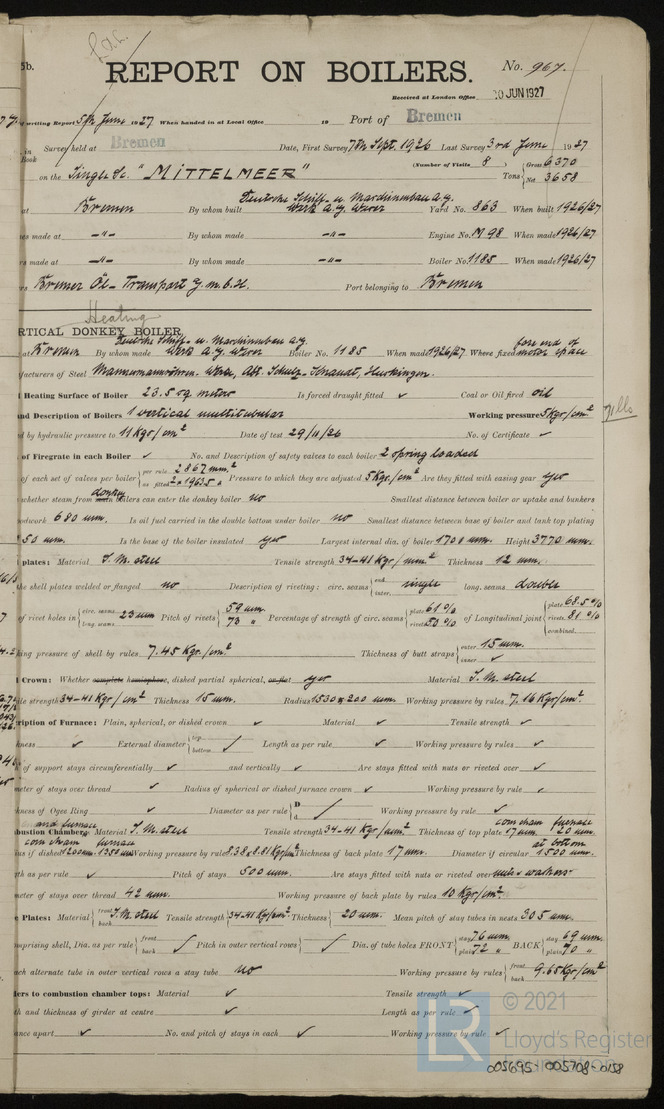 5b.
REPORT ON BOILERS.
No. 967.
Received at London Office 20 JUN 1927
of writing Report 5th June 1927 When handed in at Local Office 19 Port of Bremen
in Survey held at Bremen Date, First Survey 7th Sept. 1926 Last Survey 3rd June 1927
Book (Number of Visits 8)
on the Single Sc. "MITTELMEER" Tons { Gross 6370 Net 3658
at Bremen By whom built Deutsche Schiff- u. Maschinenbau A.G. Werk A.G. Weser Yard No. 863 When built 1926/27
es made at -"- By whom made -"- Engine No. M 98 When made 1926/27
s made at -"- By whom made -"- Boiler No. 1185 When made 1926/27
s Bremer Öl-Transport G.m.b.H. Port belonging to Bremen
Heating
RTICAL DONKEY BOILER.
at Bremen By whom made Deutsche Schiff- u. Maschinenbau A.G. Werk A.G. Weser Boiler No. 1185 When made 1926/27. Where fixed fore end of motor space
facturers of Steel
l Heating Surface of Boiler 23.5 sq meter Is forced draught fitted ✓ Coal or Oil fired oil
and Description of Boilers 1 vertical multitubular Working pressure 5 kgr/cm²
d by hydraulic pressure to 11 Kgr/cm² Date of test 29/11/26 No. of Certificate ✓
of Firegrate in each Boiler ✓ No. and Description of safety valves to each boiler 2 spring loaded
of each set of valves per boiler { per rule 2867 mm.² as fitted 2 × 1963.5 " Pressure to which they are adjusted 5 Kgr./cm² Are they fitted with easing gear yes
whether steam from main donkey boilers can enter the donkey boiler no Smallest distance between boiler or uptake and bunkers
oodwork 680 mm. Is oil fuel carried in the double bottom under boiler no Smallest distance between base of boiler and tank top plating
50 mm. Is the base of the boiler insulated yes Largest internal dia. of boiler 1700 mm. Height 3770 mm.
plates: Material S.M. steel Tensile strength 34-41 Kgr/mm.² Thickness 12 mm.
he shell plates welded or flanged no Description of riveting: circ. seams { end single inter. long. seams double
of rivet holes in { circ. seams long. seams 23 mm Pitch of rivets { 59 mm. 73 " Percentage of strength of circ. seams { plate 61 % rivets 53 % of Longitudinal joint { plate 68.5 % rivets 81 % combined.
king pressure of shell by rules 7.45 Kgr./cm² Thickness of butt straps { outer 15 mm. inner ✓
l Crown: Whether complete hemisphere, dished partial spherical, or flat yes Material S.M. steel
ile strength 34-41 Kgr/cm² Thickness 15 mm. Radius 1530 & 200 mm. Working pressure by rules 7.16 Kgr/cm².
ription of Furnace: Plain, spherical, or dished crown ✓ Material ✓ Tensile strength ✓
kness ✓ External diameter { top bottom ✓ Length as per rule ✓ Working pressure by rules ✓
of support stays circumferentially ✓ and vertically ✓ Are stays fitted with nuts or riveted over ✓
meter of stays over thread ✓ Radius of spherical or dished furnace crown ✓ Working pressure by rule ✓
kness of Ogee Ring ✓ Diameter as per rule { D d ✓ Working pressure by rule ✓
and furnace com cham furnace
bustion Chamber: Material S.M. steel Tensile strength 34-41 Kgr/mm.² Thickness of top plate 17 mm. 20 mm.
com cham furnace at bottom
us if dished 1200 mm. 1350 mm Working pressure by rule 8.38 & 8.81 Kgr/cm² Thickness of back plate 17 mm. Diameter if circular 1500 mm.
th as per rule ✓ Pitch of stays 500 mm. Are stays fitted with nuts or riveted over nuts & washers
meter of stays over thread 42 mm. Working pressure of back plate by rules 10 Kgr/cm².
e Plates: Material { front back S.M. steel Tensile strength { 34-41 Kgr/cm² Thickness { 20 mm. Mean pitch of stay tubes in nests 305 mm.
mprising shell, Dia. as per rule { front back ✓ Pitch in outer vertical rows { ✓ Dia. of tube holes FRONT { stay 76 mm plain 72 " BACK { stay 69 mm. plain 70 "
ach alternate tube in outer vertical rows a stay tube no Working pressure by rules { front back 9.65 Kgr/cm²
ders to combustion chamber tops: Material ✓ Tensile strength ✓
th and thickness of girder at centre ✓ Length as per rule ✓
ance apart ✓ No. and pitch of stays in each ✓ Working pressure by rule ✓
© 2021
LR
Lloyd's Register
Foundation
005695-005708-0158